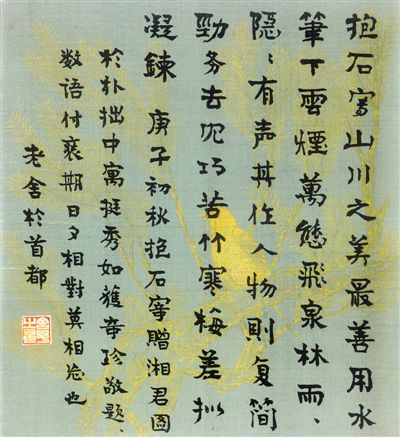 抱石寫山川之美最善用水
筆下雲煙萬態飛泉林雨、
隐、有声其作人物則复简
勁务去冗巧苦竹寒梅差拟
凝鍊 庚子初秋抱石寫贈湘君圖
於朴拙中寓挺秀如獲奇珍敬題、
数语付裱期日夕相對莫相忘也
老舍於首都